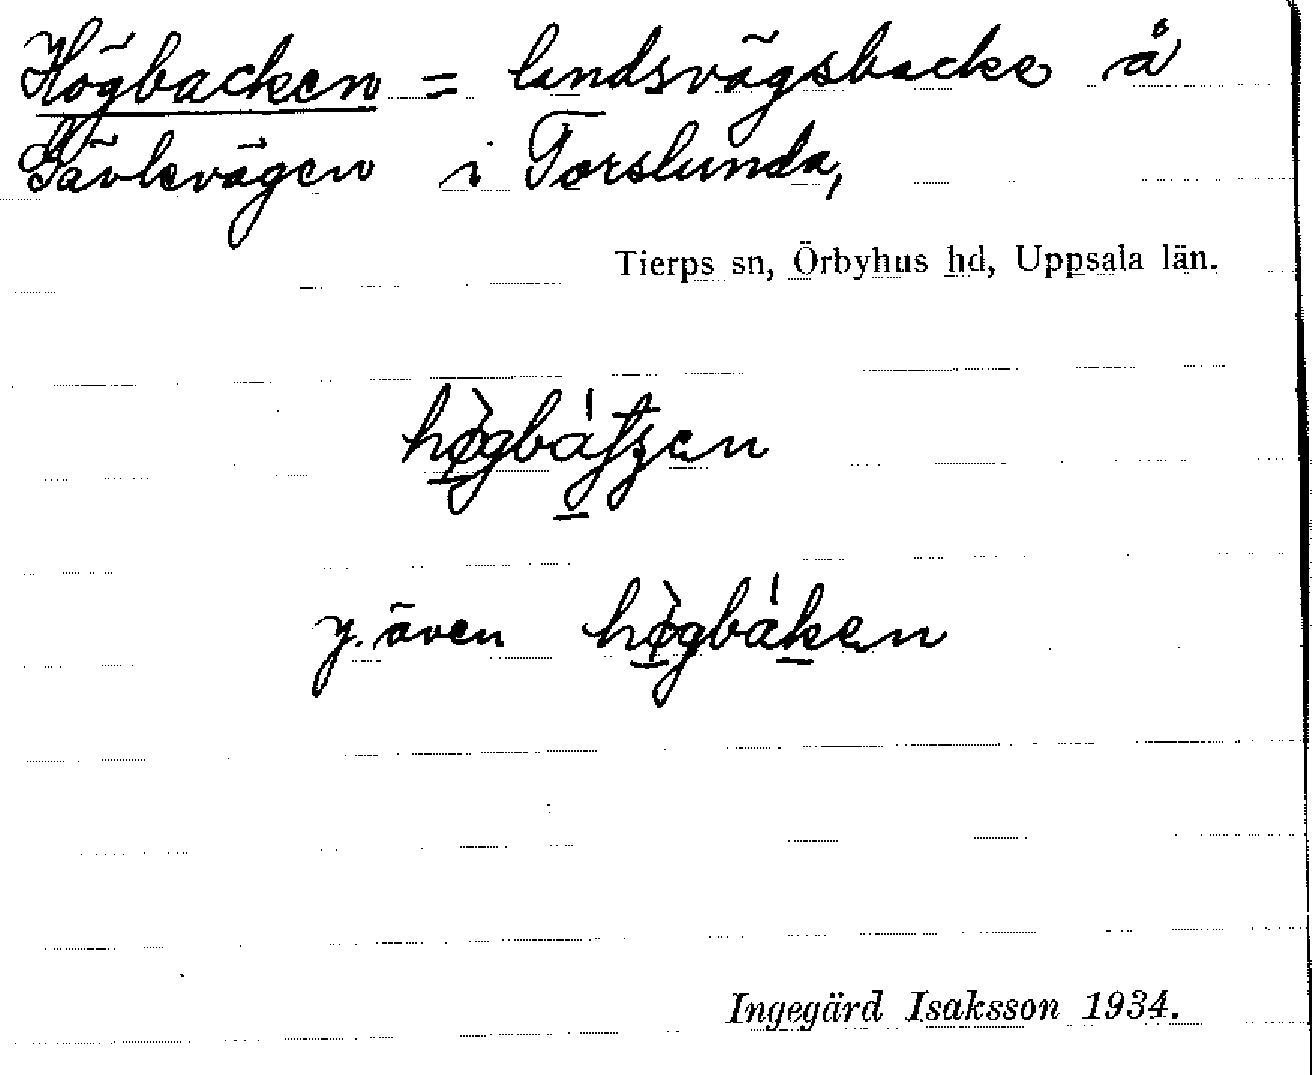 Högbacken = landsvägsbacke å
Gävlevägen i Torslunda,
Tierps sn, Örbyhus hd, Uppsala län.
y. även
Ingegärd Isaksson 1934.